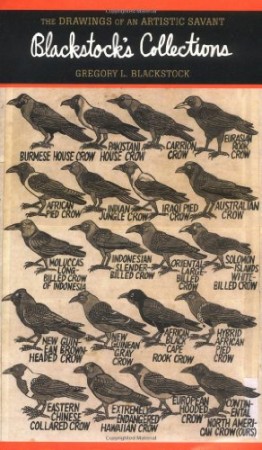 THE DRAWINGS OF AN ARTISTIC SAVANT
Blackstock's Collections
GREGORY L. BLACKSTOCK
BURMESE HOUSE CROW
PAKISTANI
HOUSE CROW
CARRION
CROW
EURASIAN
ROOK
CROW
AFRICAN
PIED CROW
INDIAN
JUNGLE CROW
IRAQI PIED
CROW
AUSTRALIAN
CROW
MOLUCCAS
LONG-
BILLED CROW
OF INDONESIA
INDONESIAN
SLENDER-
BILLED CROW
ORIENTAL
LARGE-
BILLED
CROW
SOLOMON
ISLANDS
WHITE-
BILLED CROW
NEW GUIN-
EAN BROWN-
HEADED CROW
NEW
GUINEAN
GRAY
CROW
AFRICAN
BLACK
CAPE
ROOK CROW
HYBRID
AFRICAN
PIED
CROW
EASTERN
CHINESE
COLLARED CROW
EXTREMELY
ENDANGERED
HAWAIIAN CROW
EUROPEAN
HOODED
CROW
CONTIN-
ENTAL
NORTH AMERI-
CAN CROW (OURS)